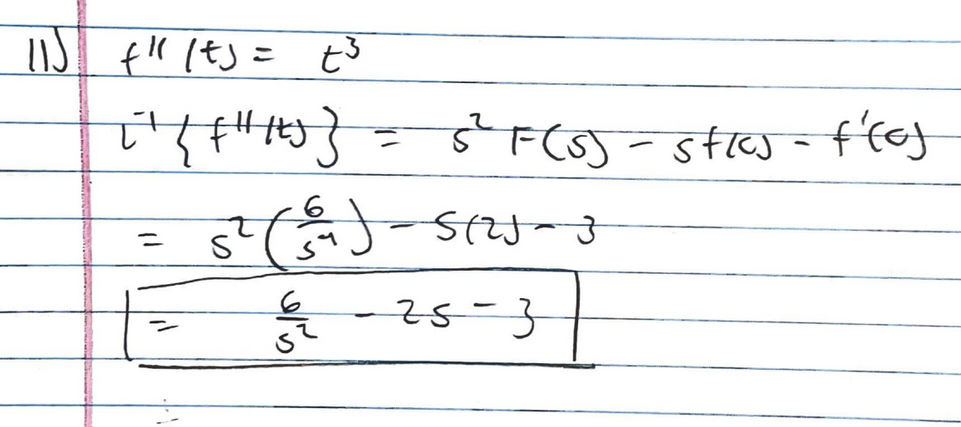 11) f''(t) = t³
L⁻¹{f''(t)} = s² F(s) - s f(0) - f'(0)
= s²(6/s⁴) - s(2) - 3
= 6/s² - 2s - 3